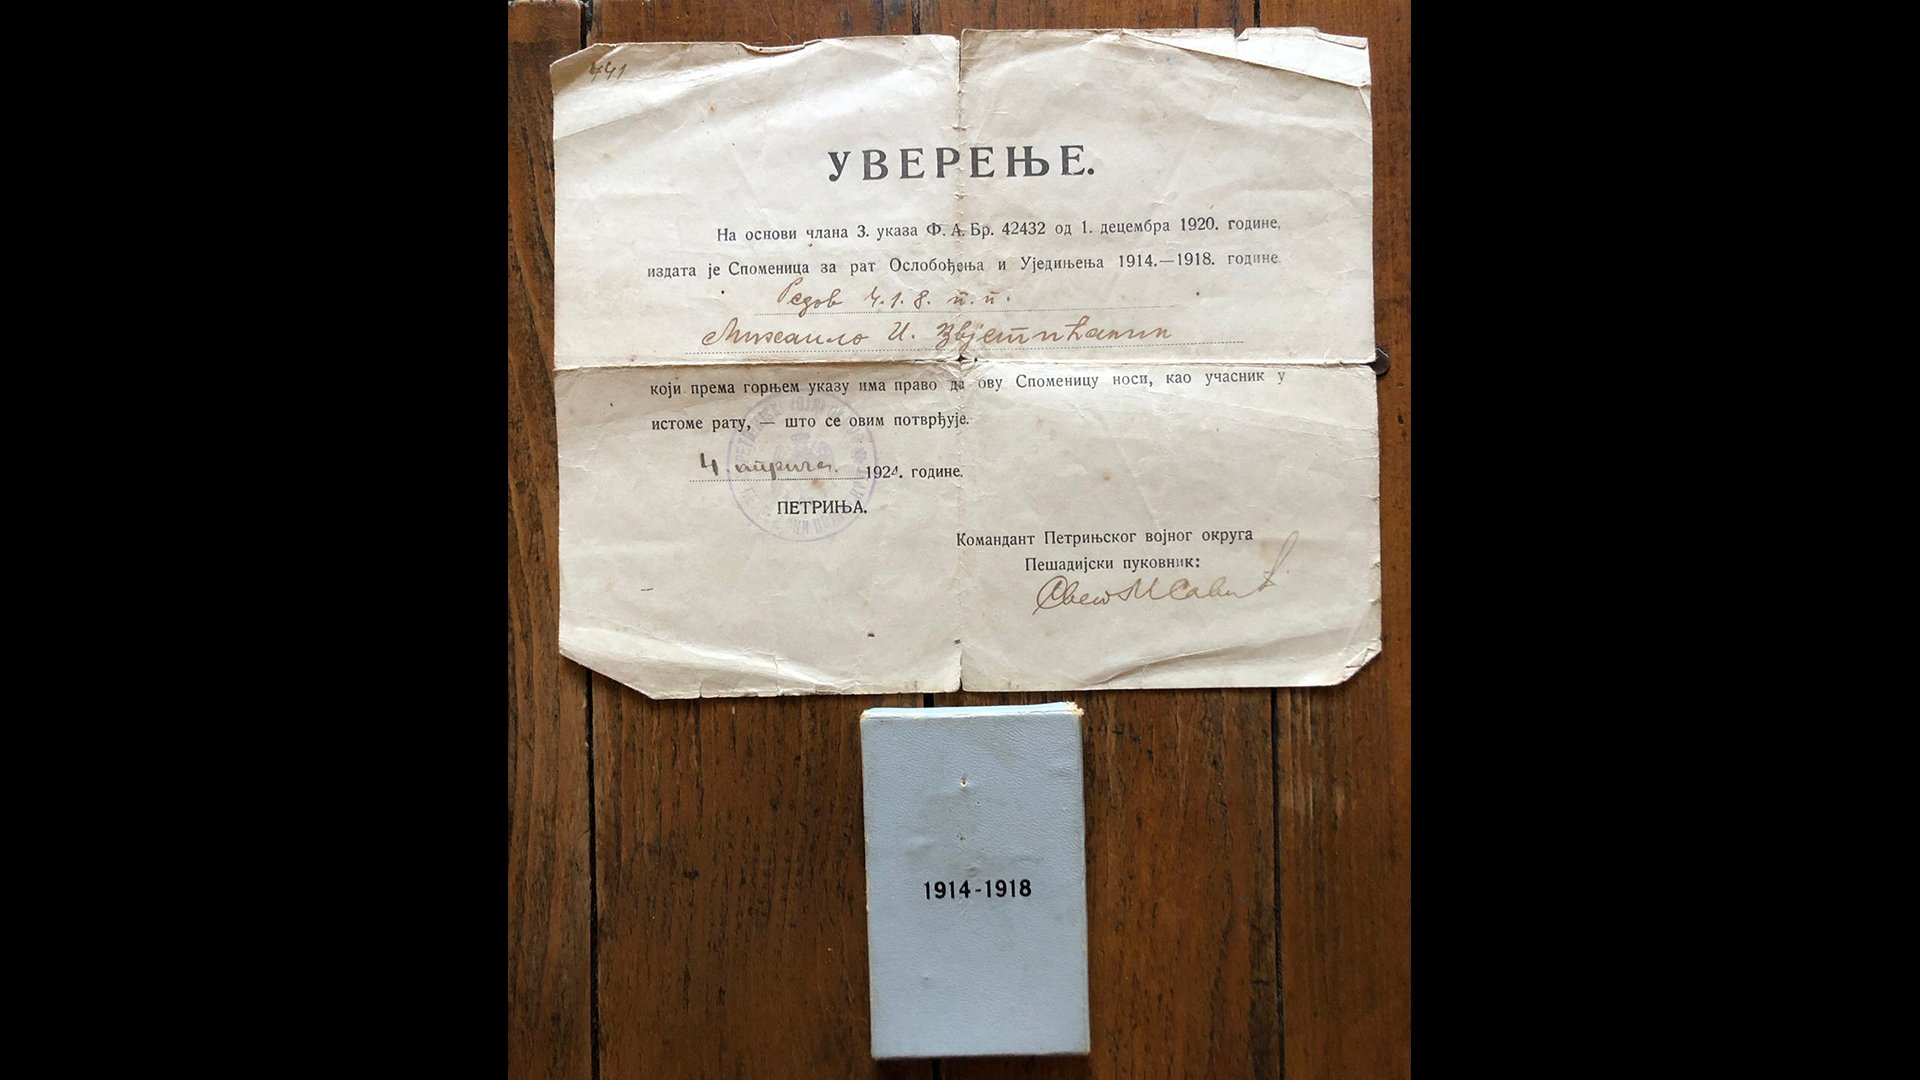 441
УВЕРЕЊЕ.
На основи члана 3. указа Ф. А. Бр. 42432 од 1. децембра 1920. године,
издата је Споменица за рат Ослобођења и Уједињења 1914.—1918. године
Редов 4. 1. 8. п. п.
Михаило И. Звјетићанин
који према горњем указу има право да ову Споменицу носи, као учасник у
истоме рату, — што се овим потврђује.
4. априла 1924. године.
ПЕТРИЊА.
Командант Петрињског војног округа
Пешадијски пуковник:
1914-1918